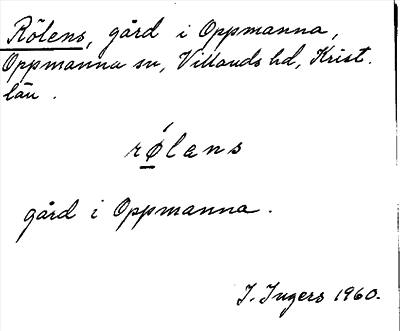 Rölens, gård i Oppmanna,
Oppmanna sn, Villands hd, Krist.
län.
rǿlens
gård i Oppmanna.
I. Ingers 1960.